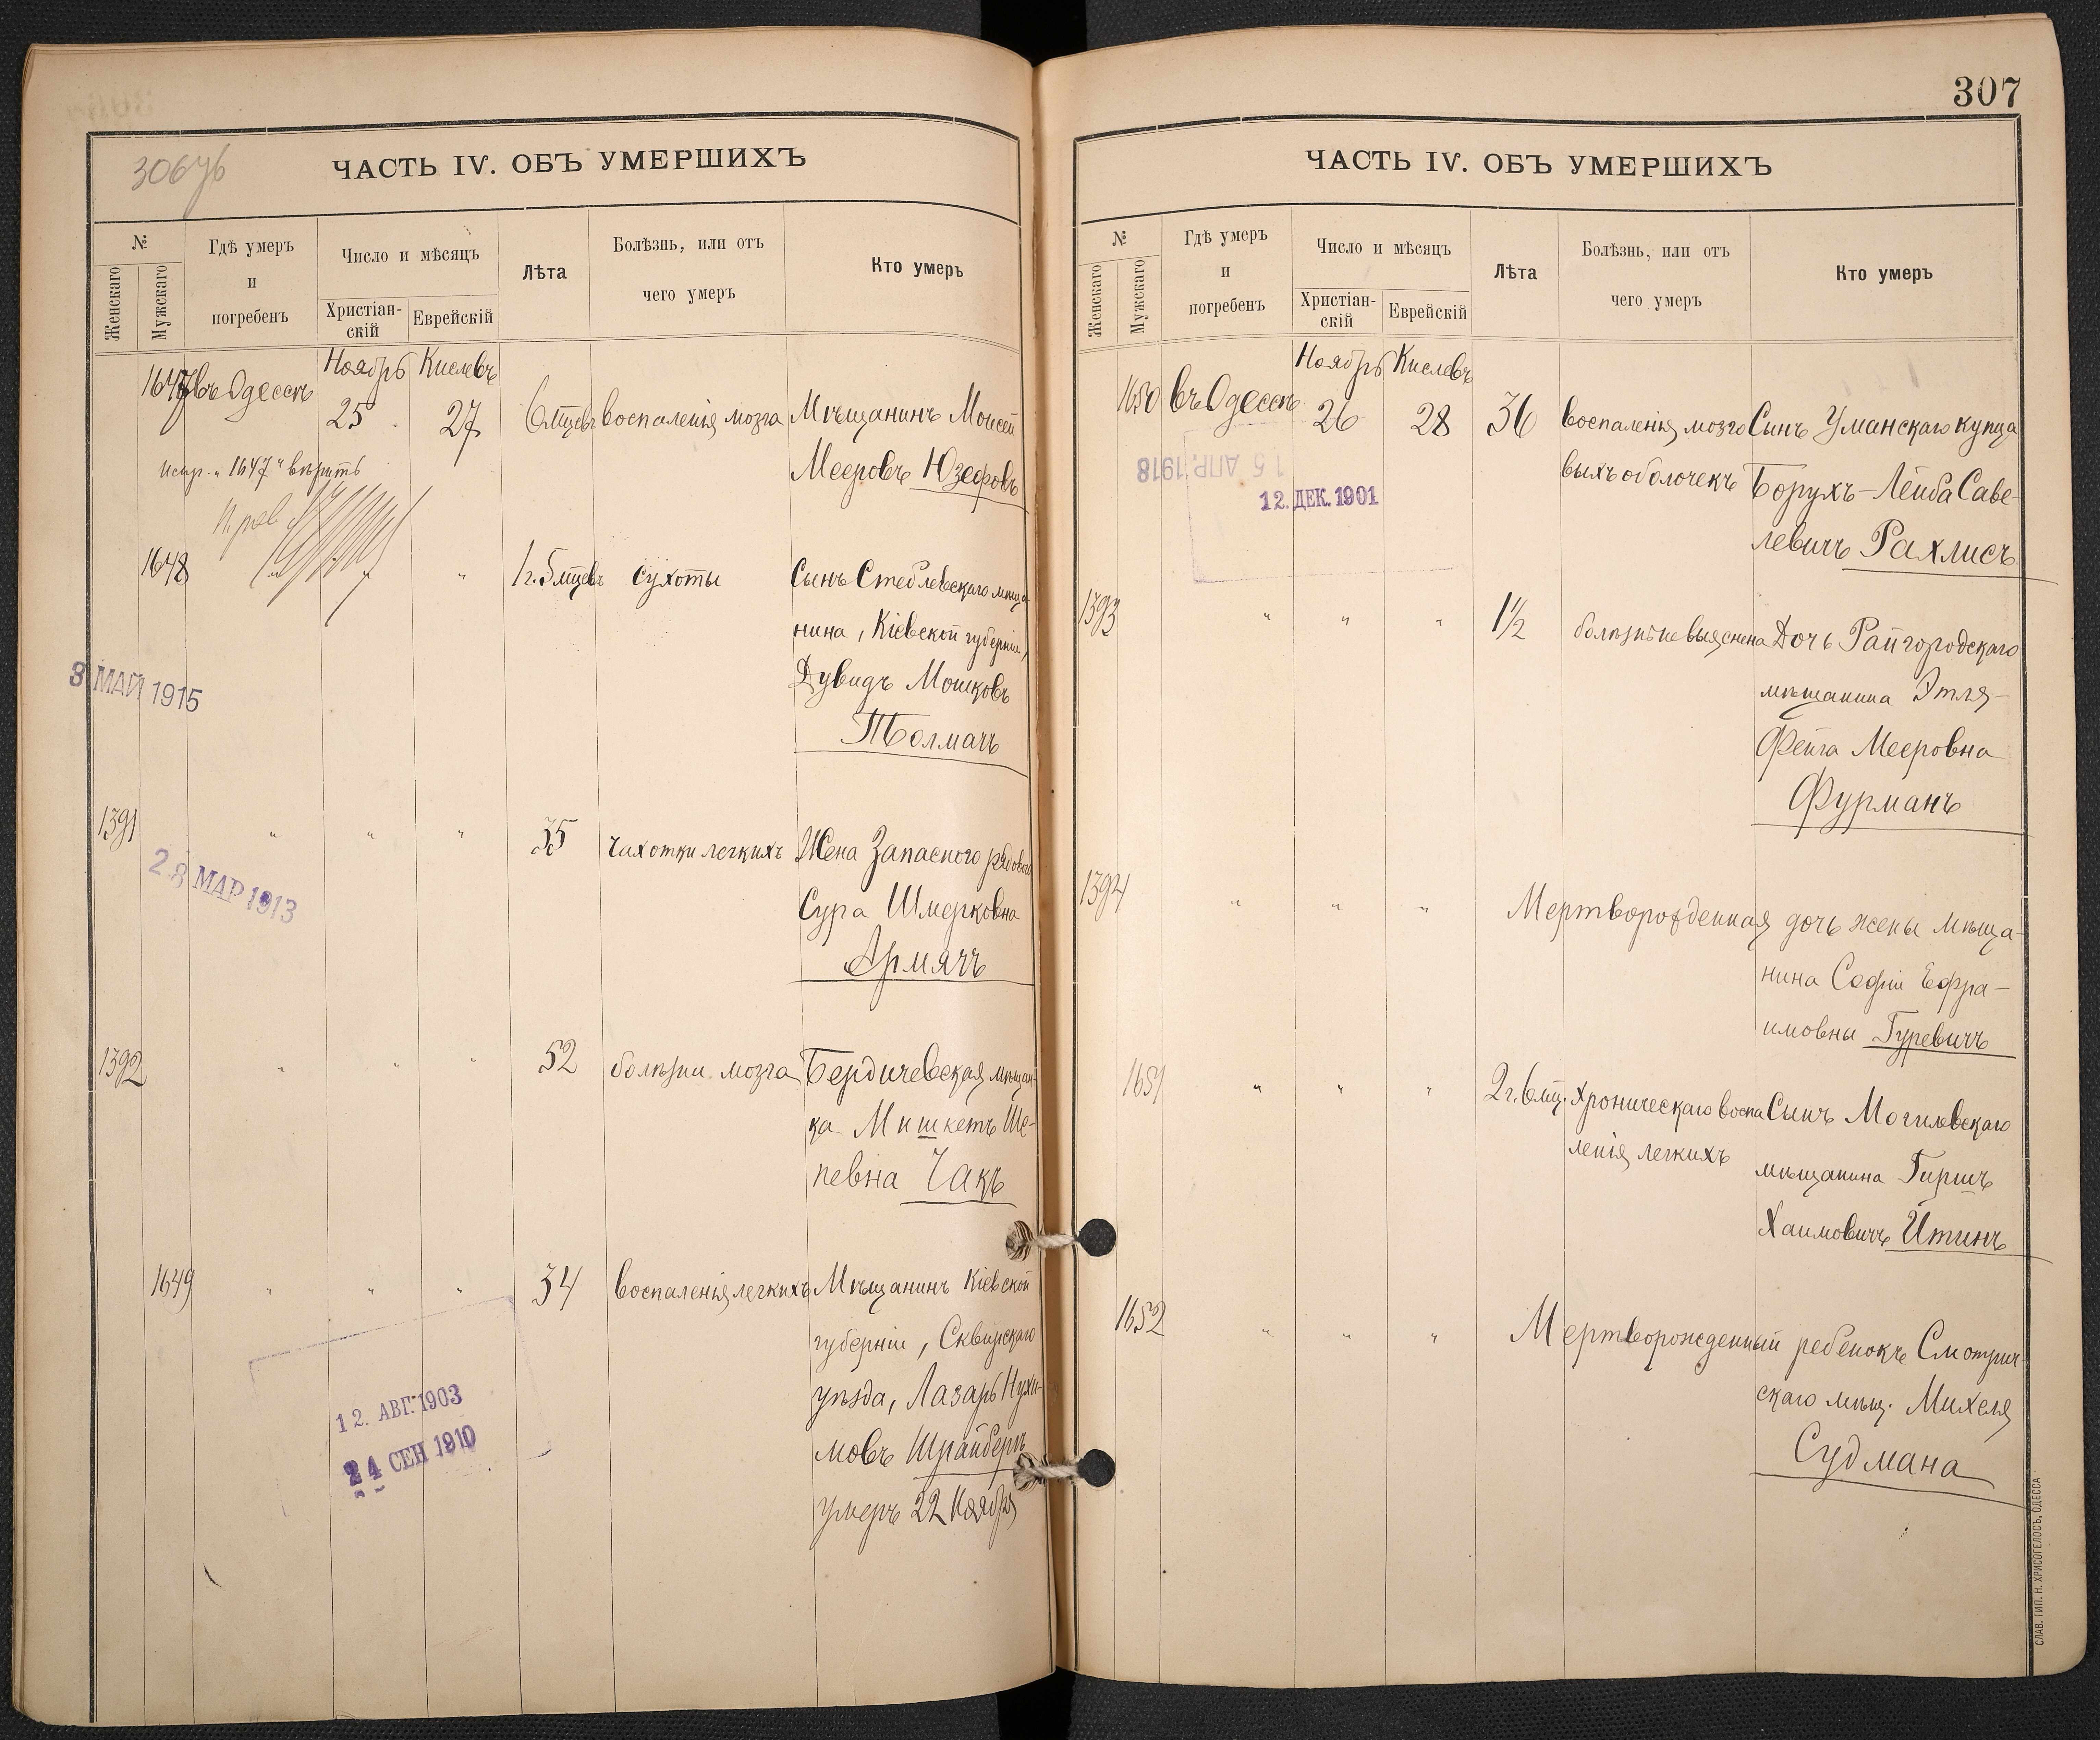 306 об
ЧАСТЬ IV. ОБЪ УМЕРШИХЪ
№
Женскаго
Мужскаго
Гдѣ умеръ
и
погребенъ
Число и мѣсяцъ
Христіан-
скій
Еврейскій
Лѣта
Болѣзнь, или отъ
чего умеръ
Кто умеръ
Ноябрь Кислевъ
1647 въ Одессѣ 25 27 6 мцевъ воспаленія мозга Мѣщанинъ Моисей
Мееровъ Юзефовъ
испр. „1647“ вѣрить
1648 " " 1 г. 5 мцевъ сухоты Сынъ Стеблевскаго мѣща-
нина, Кіевской губерніи,
Дувидъ Мошковъ
Толмачъ
3 МАЙ 1915
1391 " " " 35 чахотки легкихъ Жена Запасного рядового
Сура Шмерковна
Армячъ
28 МАР 1913
1392 " " " 52 болѣзни мозга Бердичевская мѣщан-
ка Мишкетъ Ше-
певна Чакъ
1649 " " " 34 воспаленія легкихъ Мѣщанинъ Кіевской
губерніи, Сквирскаго
уѣзда, Лазарь Нухи-
мовъ Шрайберъ
умеръ 22 Ноября
12. АВГ. 1903
24 СЕН 1910
307
ЧАСТЬ IV. ОБЪ УМЕРШИХЪ
№
Женскаго
Мужскаго
Гдѣ умеръ
и
погребенъ
Число и мѣсяцъ
Христіан-
скій
Еврейскій
Лѣта
Болѣзнь, или отъ
чего умеръ
Кто умеръ
Ноябрь Кислевъ
1650 въ Одессѣ 26 28 36 воспаленія мозго Сынъ Уманскаго купца
выхъ оболочекъ Борухъ-Лейба Саве-
левичъ Рахлисъ
15 АПР. 1918
12. ДЕК. 1901
1393 " " " 1½ болѣзнь не выяснена Дочь Райгородскаго
мѣщанина Этля-
Фейга Мееровна
Фурманъ
1394 " " " Мертворожденная дочь жены мѣща-
нина Софіи Ефра-
имовны Гуревичъ
1651 " " " 2 г. 6 мц. хроническаго воспа Сынъ Могилевскаго
ленія легкихъ мѣщанина Гиршъ
Хаимовичъ Итинъ
1652 " " " Мертворожденный ребенокъ Смотрич-
скаго мѣщ. Михеля
Судмана
СЛАВ. ТИП. Н. ХРИСОГЕЛОСЪ, ОДЕССА